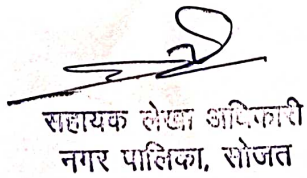 सहायक लेखा अधिकारी
नगर पालिका, सोजत